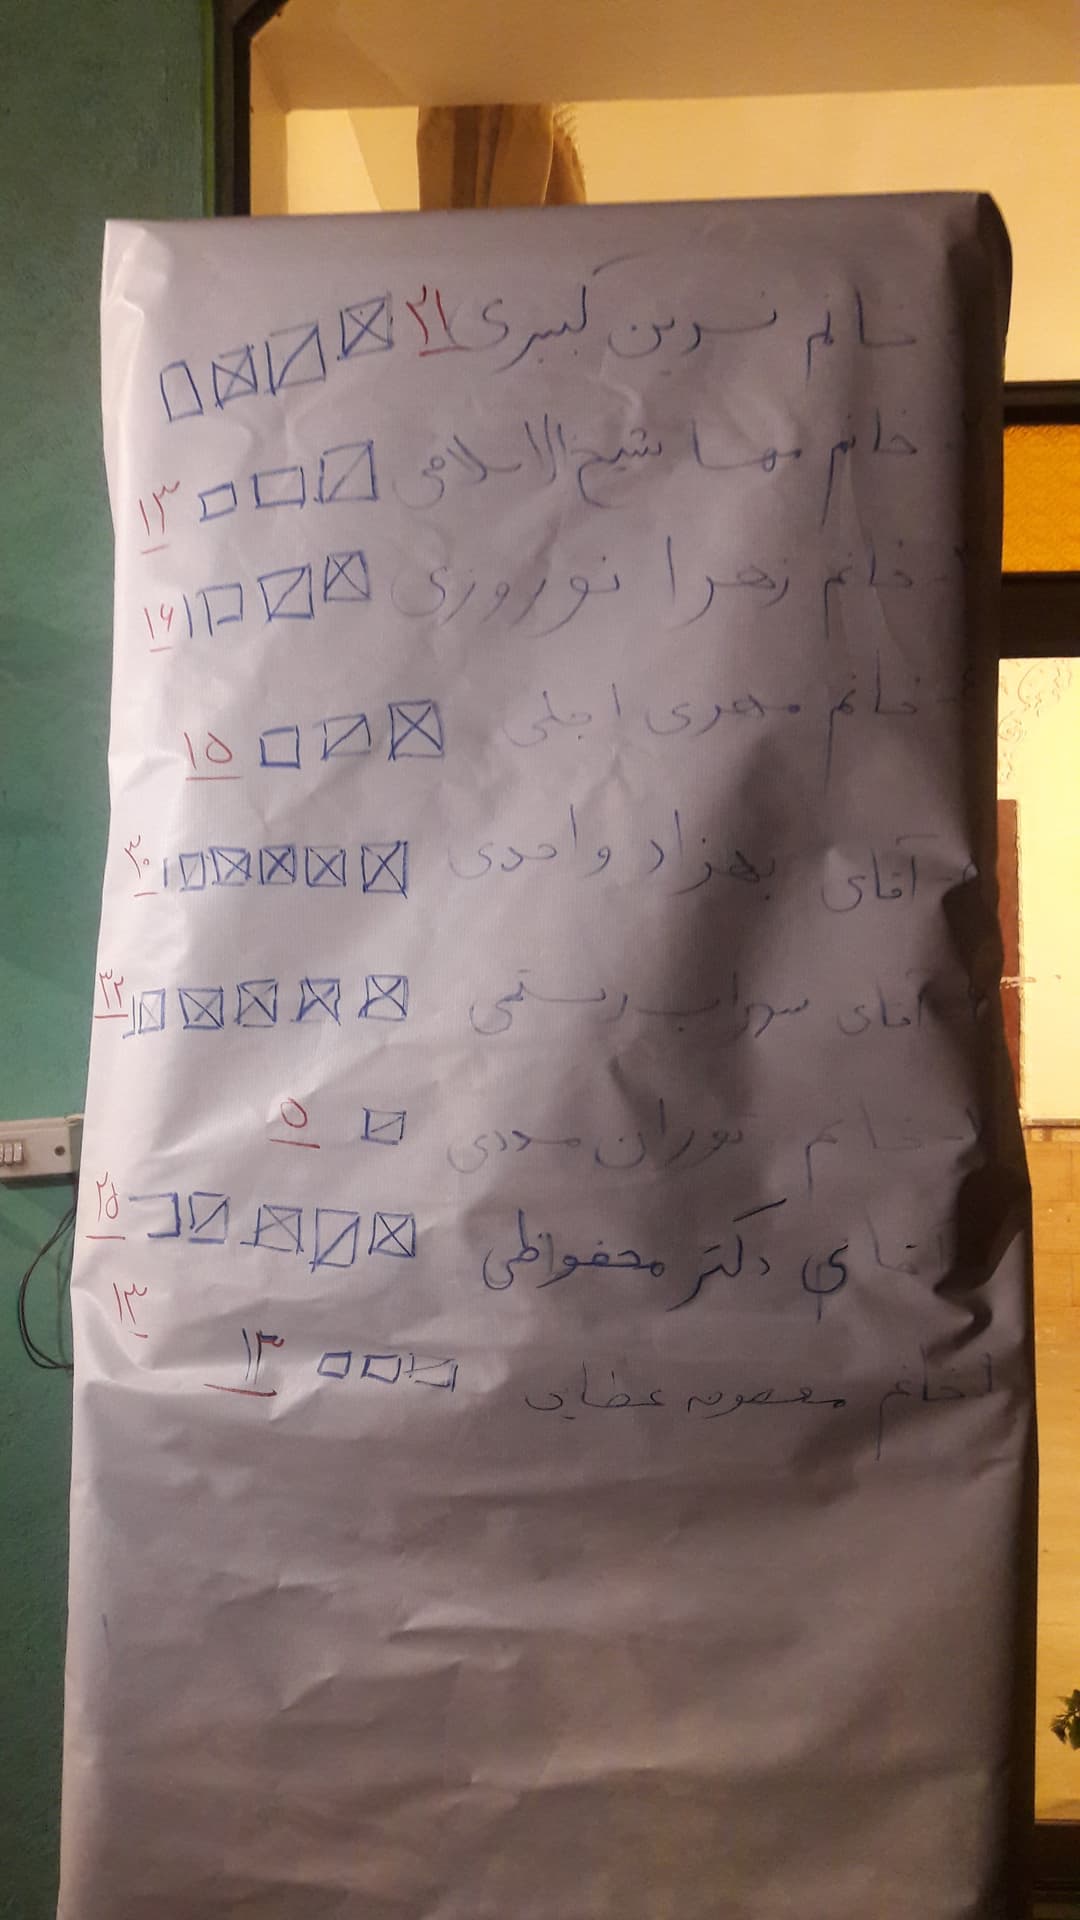 خانم نسرین کبیری ۲۱
خانم مهسا شیخ‌الاسلامی ۱۳
خانم زهرا نوروزی ۱۶
خانم مهری اجلی ۱۵
آقای بهزاد واحدی ۳۰
آقای سهراب رستمی ۳۲
خانم توران ۵
آقای دکتر محفوظی ۲۵
۱۳
خانم معصومه عطایی ۱۳